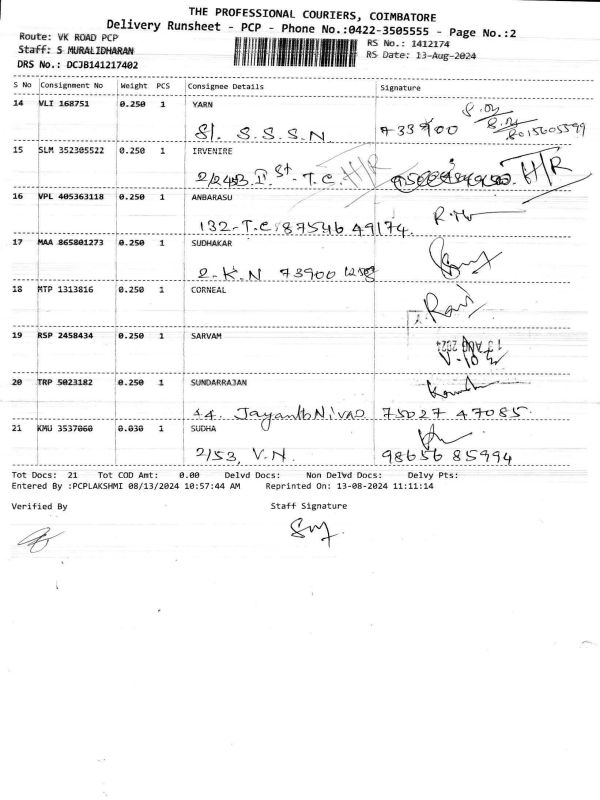 THE PROFESSIONAL COURIERS, COIMBATORE
Delivery Runsheet - PCP - Phone No.:0422-3505555 - Page No.:2
Route: VK ROAD PCP
RS No.: 1412174
Staff: S MURALIDHARAN
RS Date: 13-Aug-2024
DRS No.: DCJB141217402
S No Consignment No Weight PCS Consignee Details Signature
14 VLI 168751 0.250 1 YARN
81. S.S.S.N
8015605599
15 SLM 352305522 0.250 1 IRVENIRE
2/243 II St. T.C. H/R H/R
16 VPL 405363118 0.250 1 ANBARASU
132-T.C. 87546 49174.
17 MAA 865801273 0.250 1 SUDHAKAR
2-K.N 73900
18 MTP 1313816 0.250 1 CORNEAL
Ravi
19 RSP 2458434 0.250 1 SARVAM
13 AUG 2024
20 TRP 5023182 0.250 1 SUNDARRAJAN
44. Jayanth Nivas 75027 47085.
21 KMU 3537060 0.030 1 SUDHA
2/53, V.N. 98656 85994
Tot Docs: 21 Tot COD Amt: 0.00 Delvd Docs: Non Delvd Docs: Delvy Pts:
Entered By :PCPLAKSHMI 08/13/2024 10:57:44 AM Reprinted On: 13-08-2024 11:11:14
Verified By Staff Signature